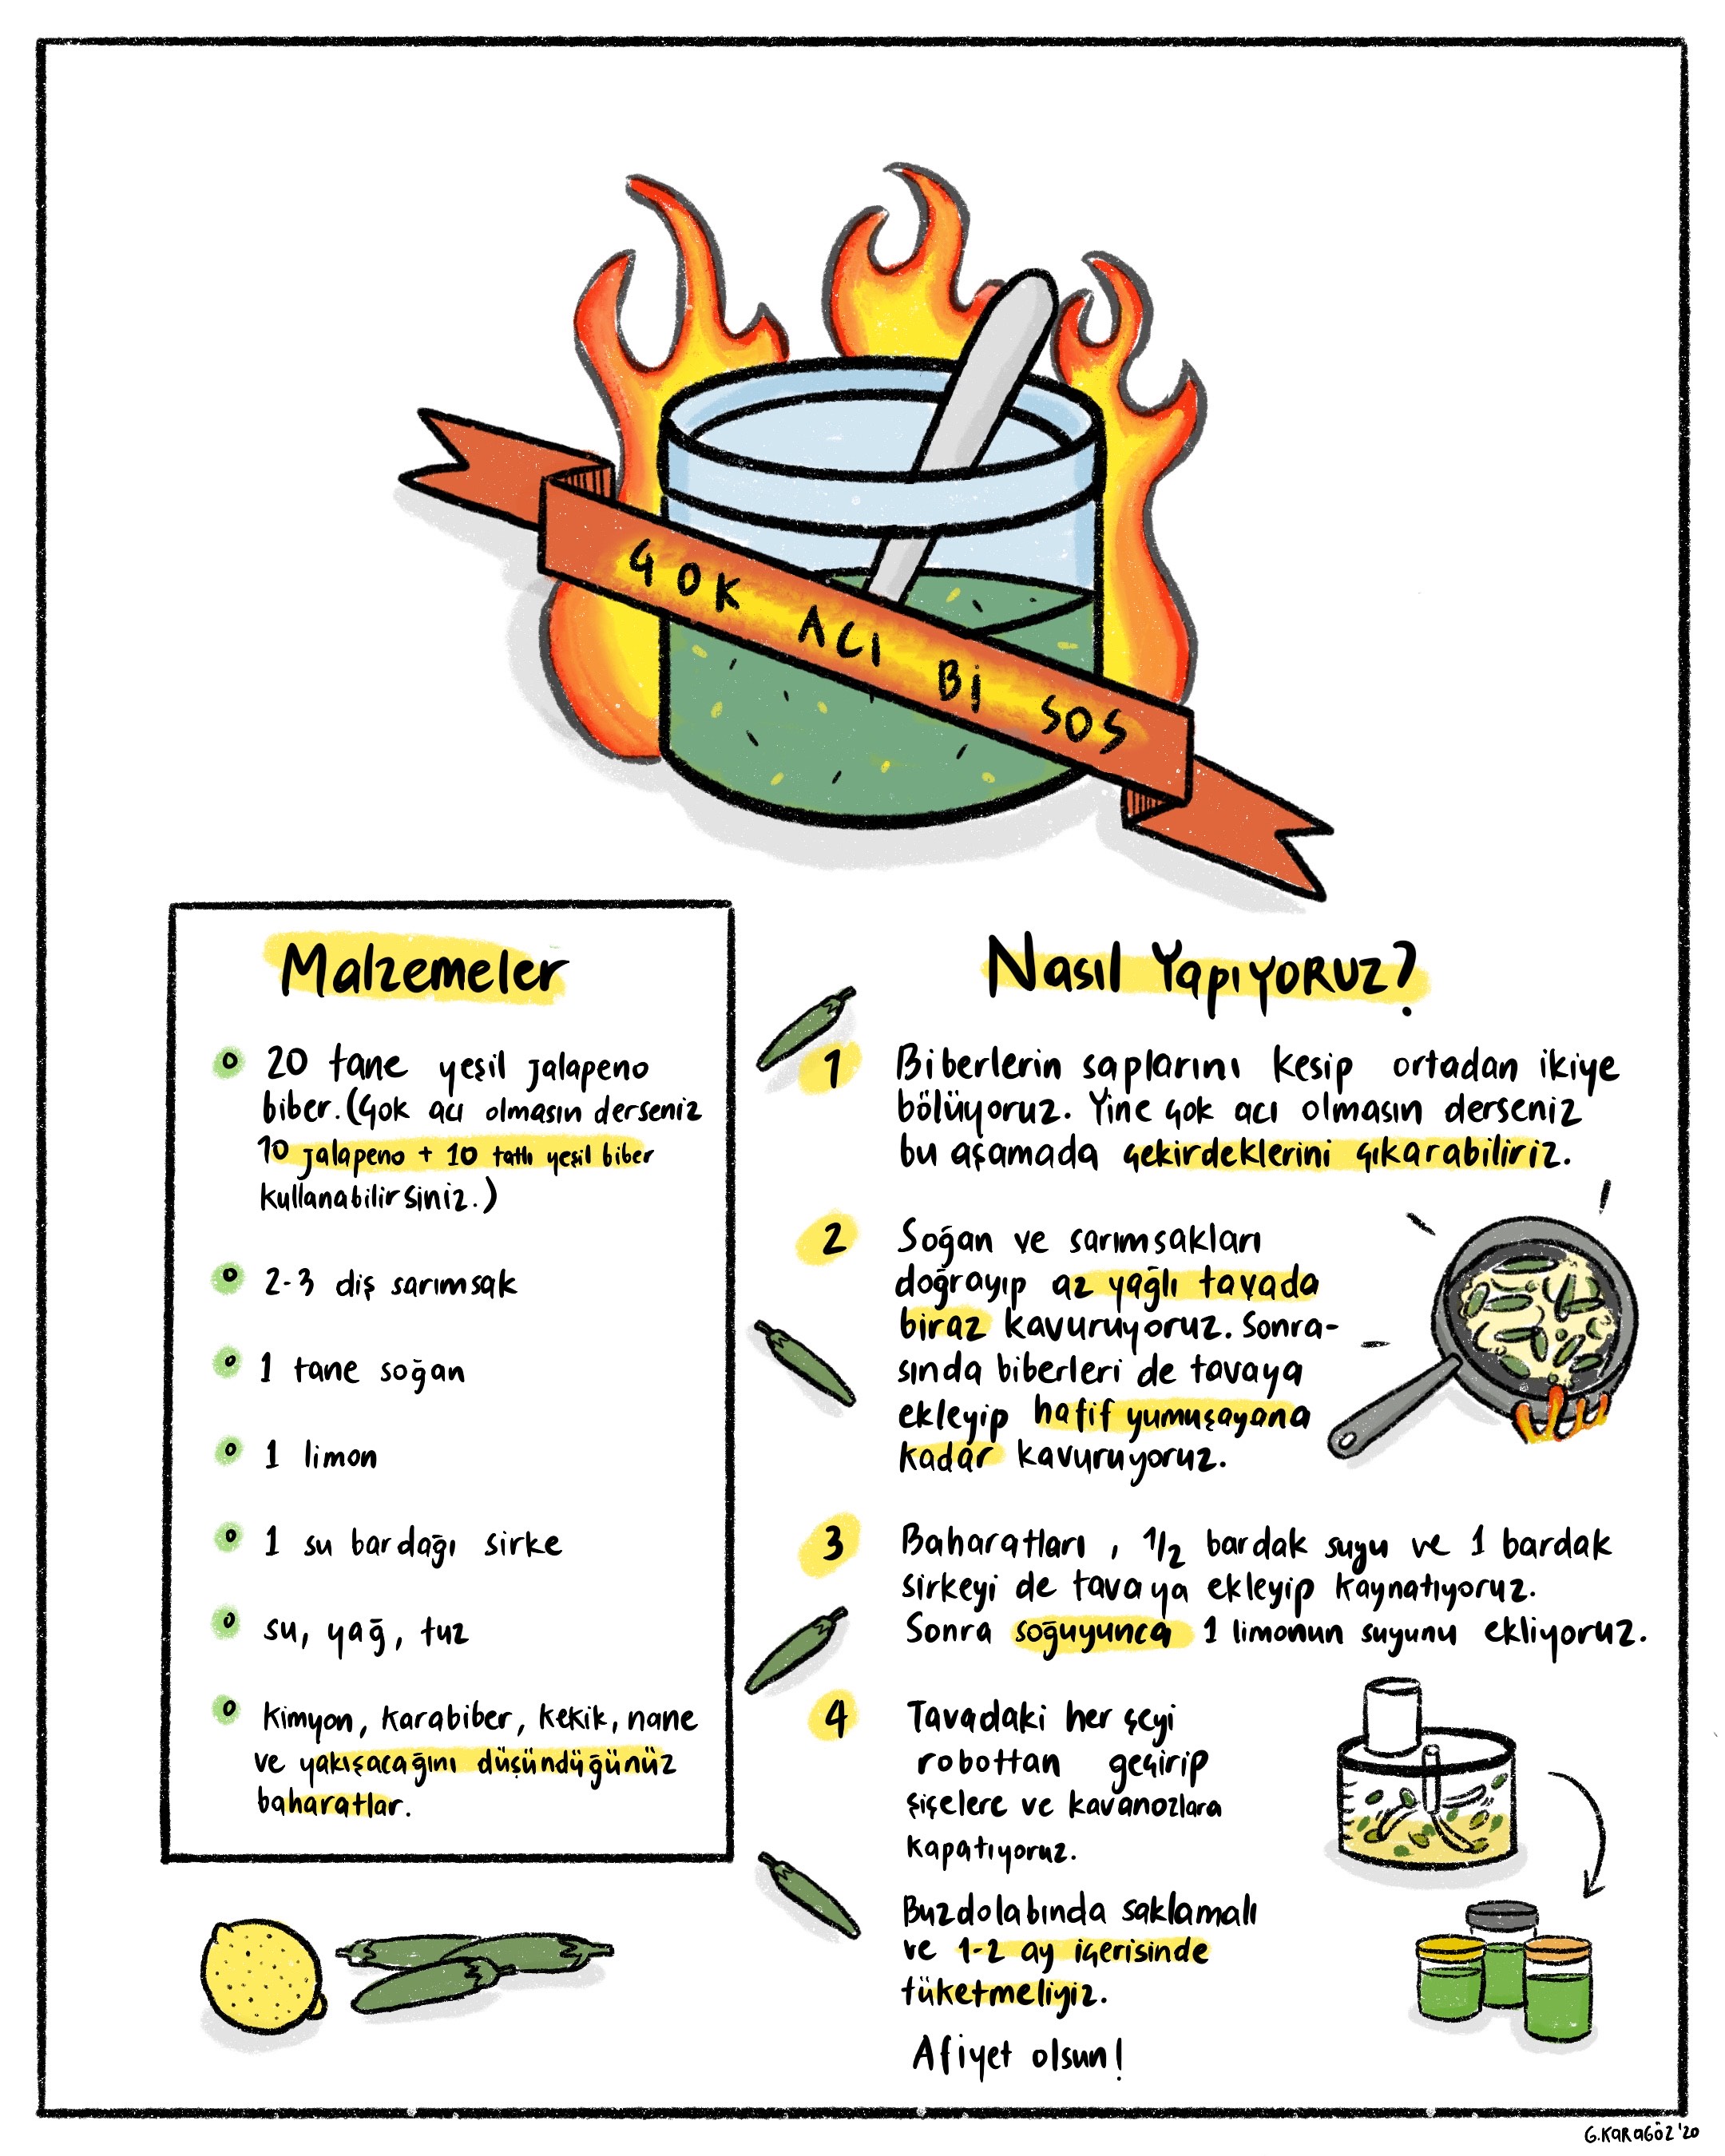 ÇOK ACI Bİ SOS
Malzemeler
20 tane yeşil jalapeno
biber. (Çok acı olmasın derseniz
10 jalapeno + 10 tatlı yeşil biber
kullanabilirsiniz.)
2-3 diş sarımsak
1 tane soğan
1 limon
1 su bardağı sirke
su, yağ, tuz
Kimyon, karabiber, kekik, nane
ve yakışacağını düşündüğünüz
baharatlar.
Nasıl Yapıyoruz?
1
Biberlerin saplarını kesip ortadan ikiye
bölüyoruz. Yine çok acı olmasın derseniz
bu aşamada çekirdeklerini çıkarabiliriz.
2
Soğan ve sarımsakları
doğrayıp az yağlı tavada
biraz kavuruyoruz. Sonra-
sında biberleri de tavaya
ekleyip hafif yumuşayana
kadar kavuruyoruz.
3
Baharatları, 1/2 bardak suyu ve 1 bardak
sirkeyi de tavaya ekleyip kaynatıyoruz.
Sonra soğuyunca 1 limonun suyunu ekliyoruz.
4
Tavadaki her şeyi
robottan geçirip
şişelere ve kavanozlara
kapatıyoruz.
Buzdolabında saklamalı
ve 1-2 ay içerisinde
tüketmeliyiz.
Afiyet olsun!
G.KARAGÖZ '20